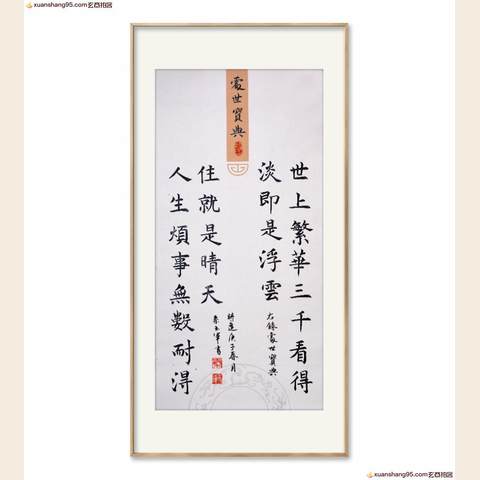 xuanshang95.com玄酉拍図
處世寶典
世上繁華三千看得
淡即是浮雲
右錄處世寶典
人生煩事無數耐得
住就是晴天
時逢庚子春月
xuanshang95.com玄酉拍図